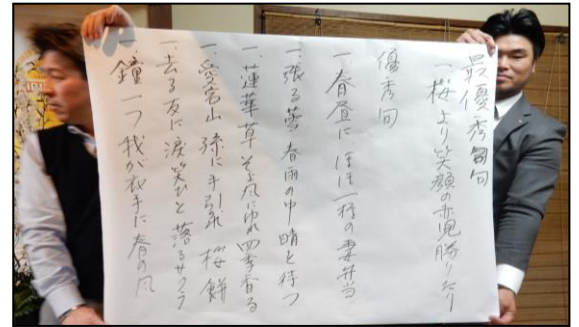 最優秀句
一、桜より笑顔の赤児勝りたり
優秀句
一、春昼に、ほほ一様の妻弁当
一、張る蕾、春雨の中晴と待つ
一、蓮華草そよ風にゆれ四季香る
一、愛宕山 孫に手引れ 桜餅
一、去る友に涙笑ひと落るサクラ
一、鐘一つ我が衣手に春の風